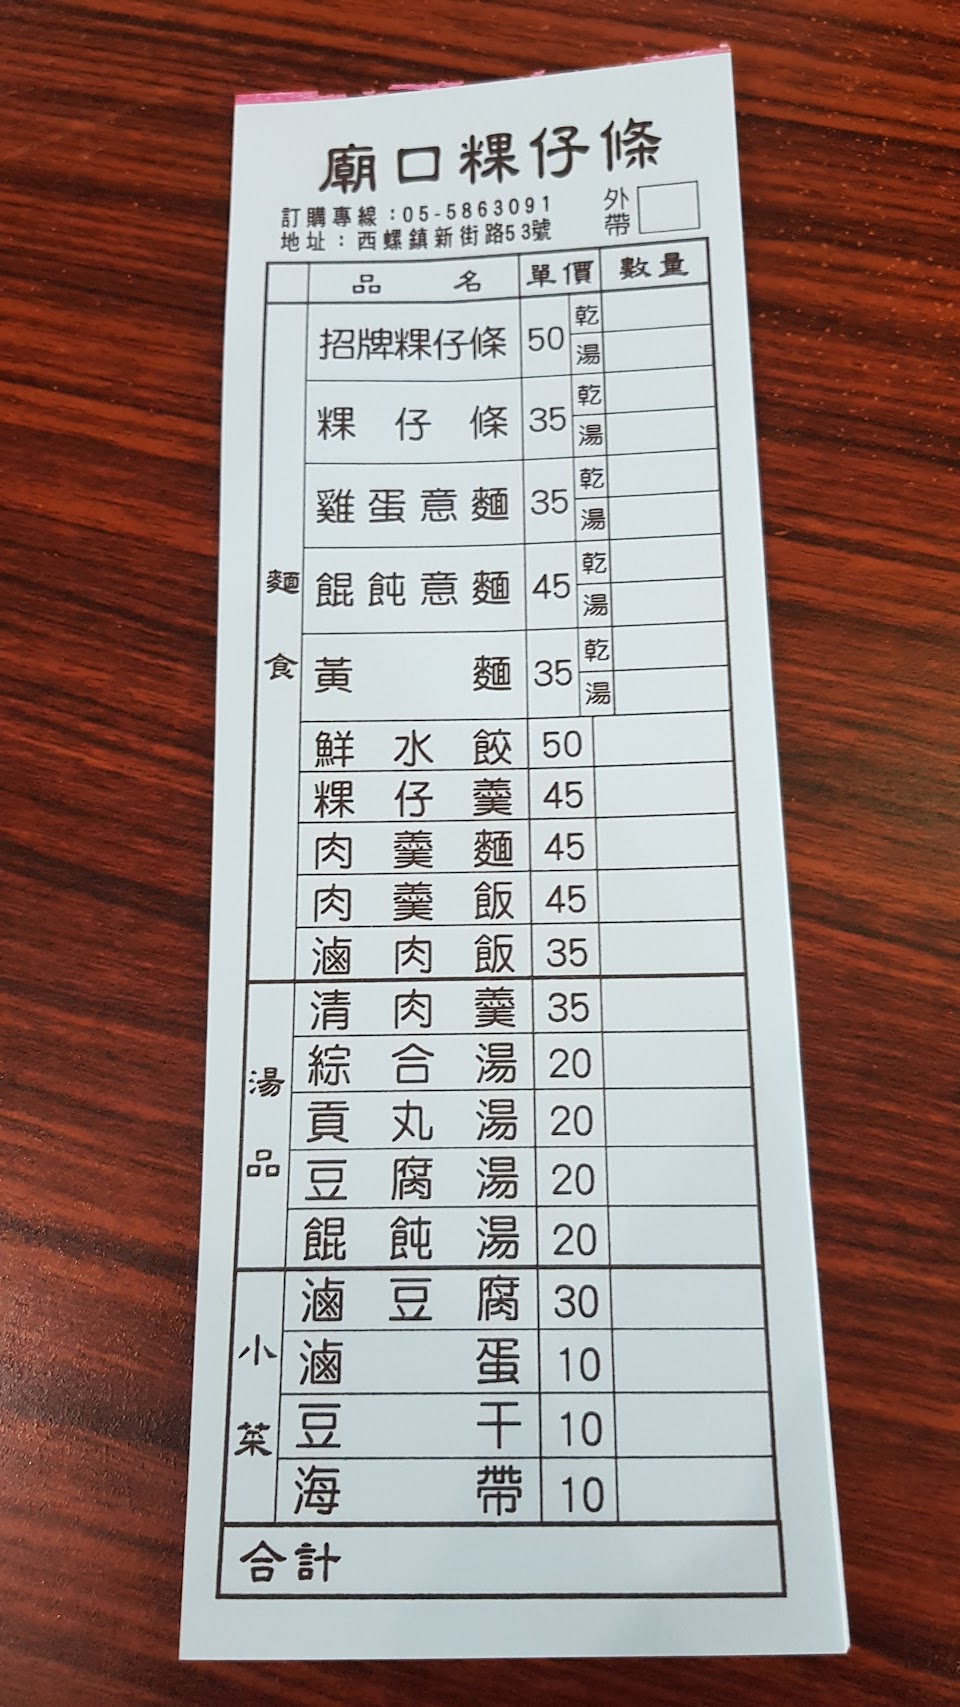 廟口粿仔條
訂購專線:05-5863091
地址:西螺鎮新街路53號
外帶
品名 單價 數量
麵食
招牌粿仔條 50 乾 湯
粿仔條 35 乾 湯
雞蛋意麵 35 乾 湯
餛飩意麵 45 乾 湯
黃麵 35 乾 湯
鮮水餃 50
粿仔羹 45
肉羹麵 45
肉羹飯 45
滷肉飯 35
湯品
清肉羹 35
綜合湯 20
貢丸湯 20
豆腐湯 20
餛飩湯 20
小菜
滷豆腐 30
滷蛋 10
豆干 10
海帶 10
合計